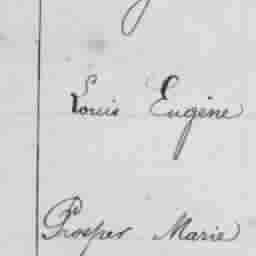 Louis Eugène
Prosper Marie